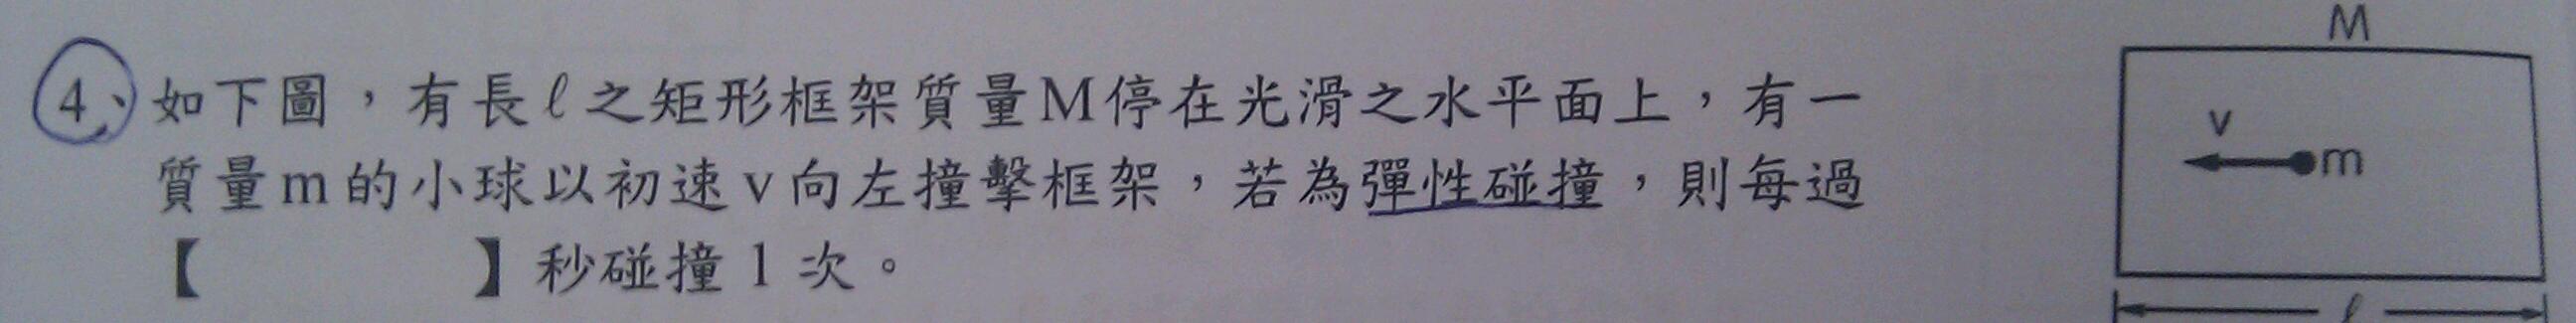 4、如下圖，有長ℓ之矩形框架質量M停在光滑之水平面上，有一
質量m的小球以初速v向左撞擊框架，若為彈性碰撞，則每過
【　　　　】秒碰撞1次。
M
v
m
ℓ